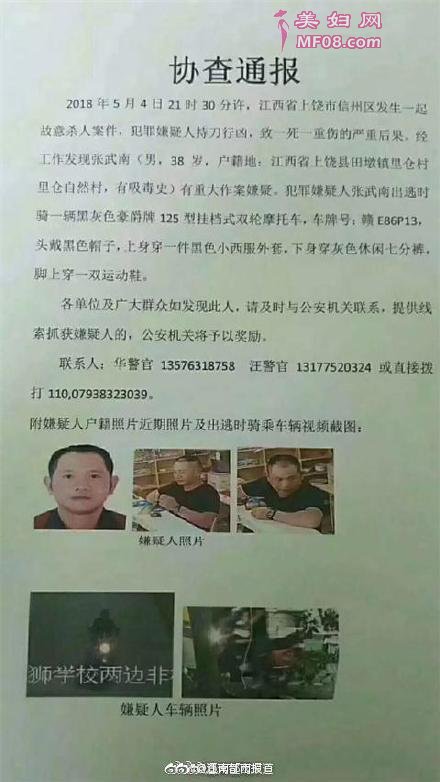 美妇网
MF08.com
协查通报
2018年5月4日21时30分许，江西省上饶市信州区发生一起
故意杀人案件，犯罪嫌疑人持刀行凶，致一死一重伤的严重后果。经
工作发现张武南（男，38岁，户籍地：江西省上饶县田墩镇里仓村
里仓自然村，有吸毒史）有重大作案嫌疑。犯罪嫌疑人张武南出逃时
骑一辆黑灰色豪爵牌125型挂档式双轮摩托车，车牌号：赣E86P13，
头戴黑色帽子，上身穿一件黑色小西服外套，下身穿灰色休闲七分裤，
脚上穿一双运动鞋。
各单位及广大群众如发现此人，请及时与公安机关联系，提供线
索抓获嫌疑人的，公安机关将予以奖励。
联系人：华警官 13576318758 汪警官 13177520324 或直接拨
打110,07938323039。
附嫌疑人户籍照片近期照片及出逃时骑乘车辆视频截图：
嫌疑人照片
狮学校两边非
嫌疑人车辆照片